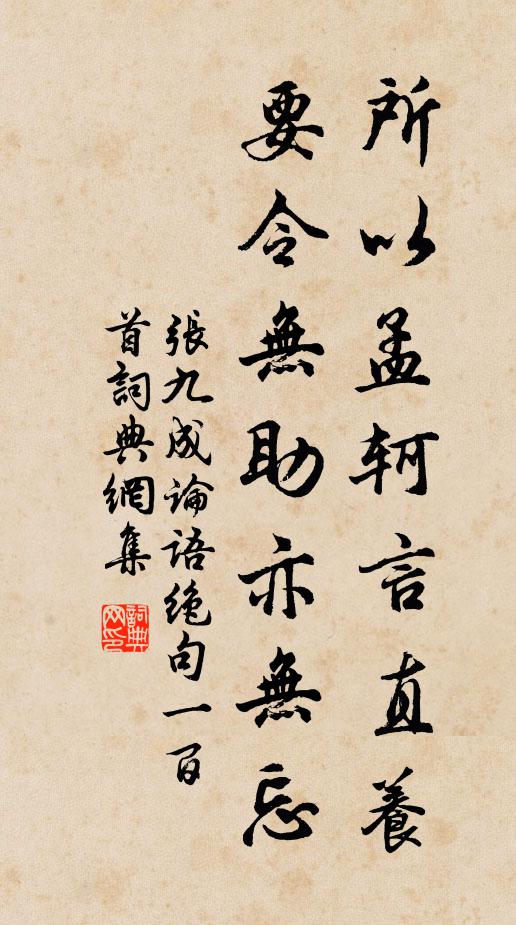 所以孟軻言直養
要令無助亦無忘
張九成論語絶句一百
首詞典網集
詞典
网印